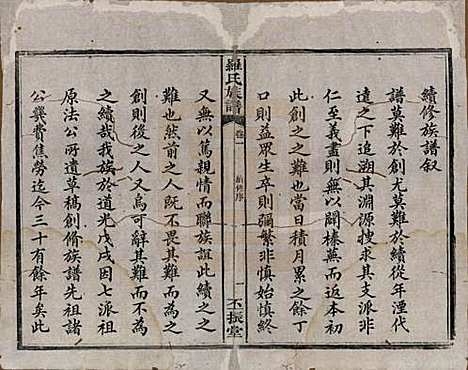 續修族譜叙
譜莫難於創尤莫難於續從年湮代
遠之下追溯其淵源搜求其支派非
仁至義盡則無以闢榛蕪而返本初
此創之之難也當日積月累之餘丁
口則益眾生卒則彌繁非慎始慎終
羅氏族譜
卷一
續修序
一
丕振堂
又無以篤親情而聯族誼此續之之
難也然前之人既不畏其難而為之
創則後之人又烏可辭其難而不為
之續哉我族於道光戊戌因七派祖
原法公所遺草稿創脩族譜先祖諸
公龔費焦勞迄今三十有餘年矣此